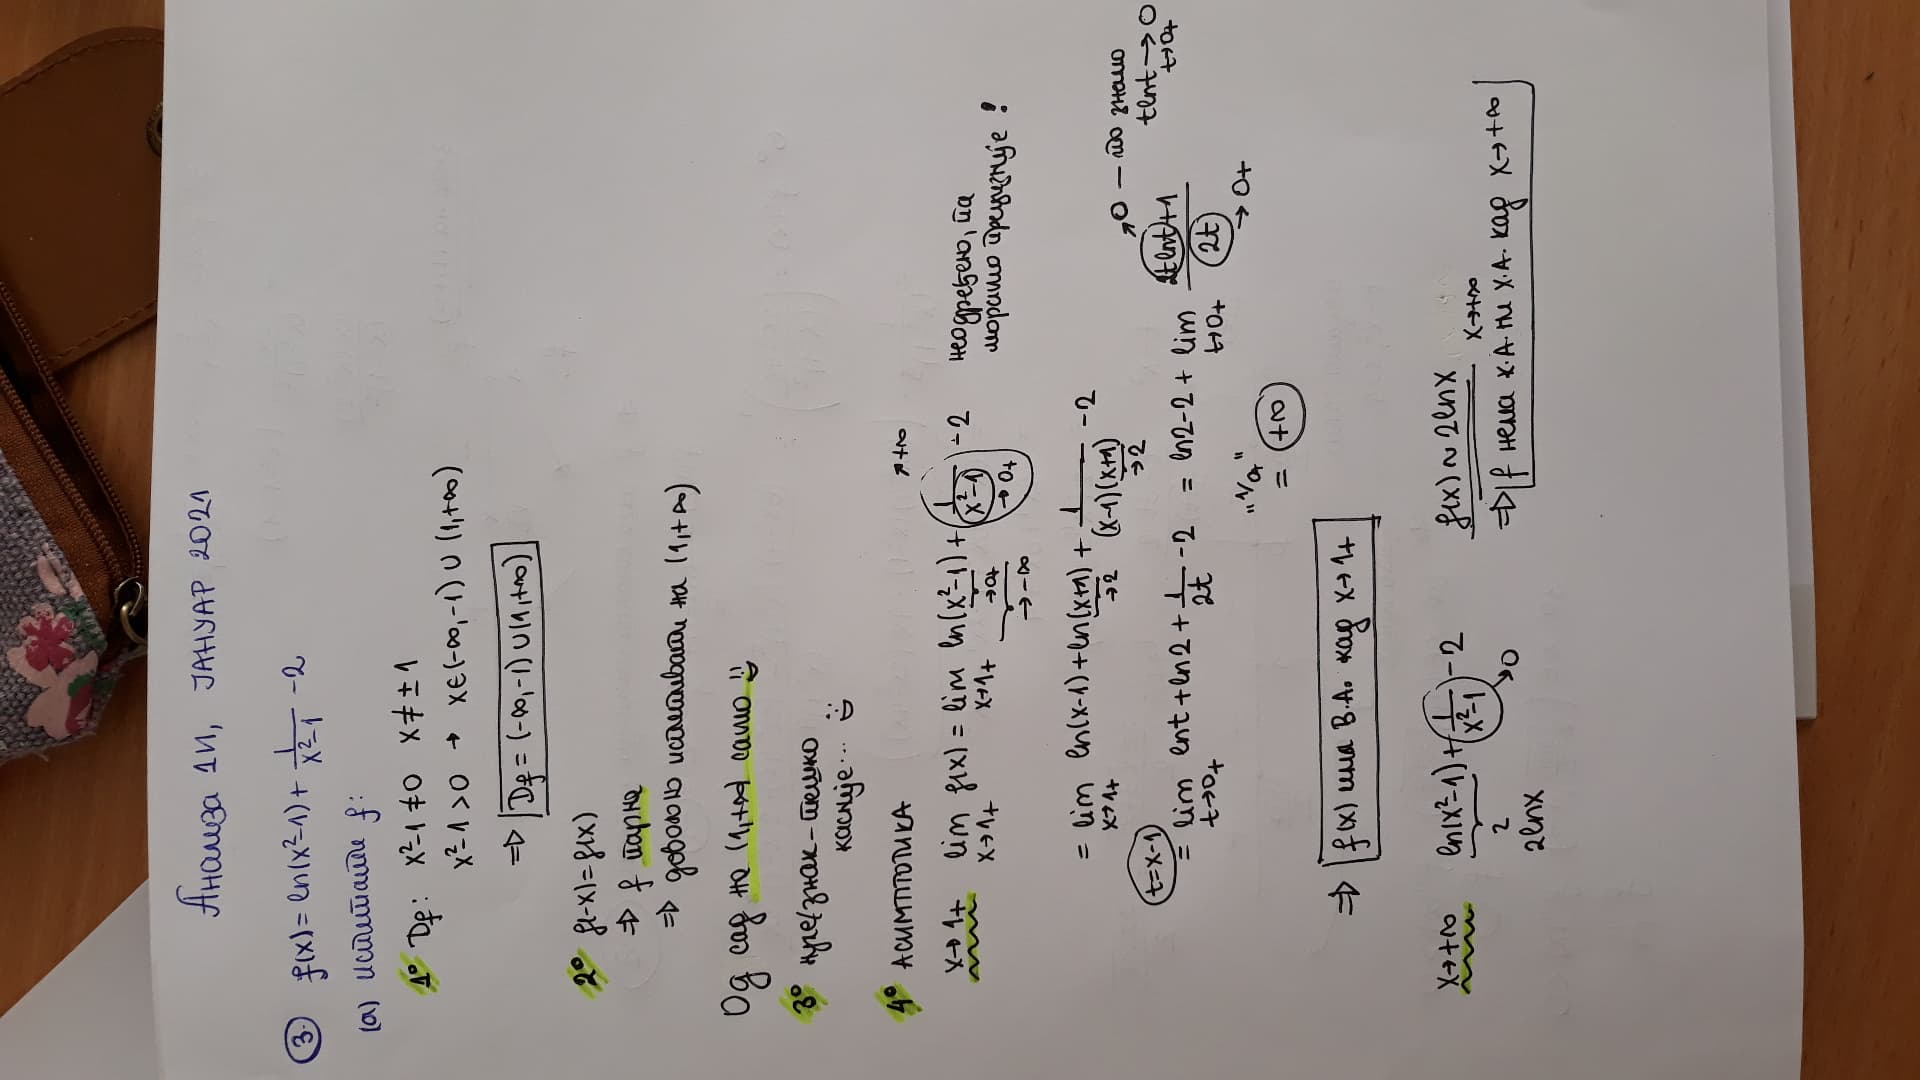 Анализа 1И, ЈАНУАР 2021
3. f(x)= ln(x²-1)+ 1/(x²-1) -2
(а) испитати f:
1° Df: x²-1≠0 x≠±1
x²-1>0 → x∈(-∞,-1)∪(1,+∞)
⇒ Df = (-∞,-1)∪(1,+∞)
2° f(-x)=f(x)
⇒ f парна
⇒ довољно испитивати на (1,+∞)
Од сад на (1,+∞) само
3° нуле/знак-тешко
касније...
4° АСИМПТОТИКА
x→1+ lim x→1+ f(x) = lim x→1+ ln(x²-1) + 1/(x²-1) -2 неодређено, па
→0+ →-∞ →0+ ↗+∞ морамо прецизније!
= lim x→1+ ln(x-1)+ln(x+1) + 1/((x-1)(x+1)) -2
→2 →2
t=x-1
= lim t→0+ lnt+ln2+ 1/2t -2 = ln2-2 + lim t→0+ (2tlnt+1)/2t
↗0 – јер знамо tlnt→0 t→0+
→0+
"1/0+"
= +∞
⇒ f(x) има В.А. кад x→1+
x→+∞ ln(x²-1)+ 1/(x²-1) -2 f(x) ~ 2lnx x→+∞
≀ →0 ⇒ f нема К.А. ни Х.А. кад x→+∞
2lnx